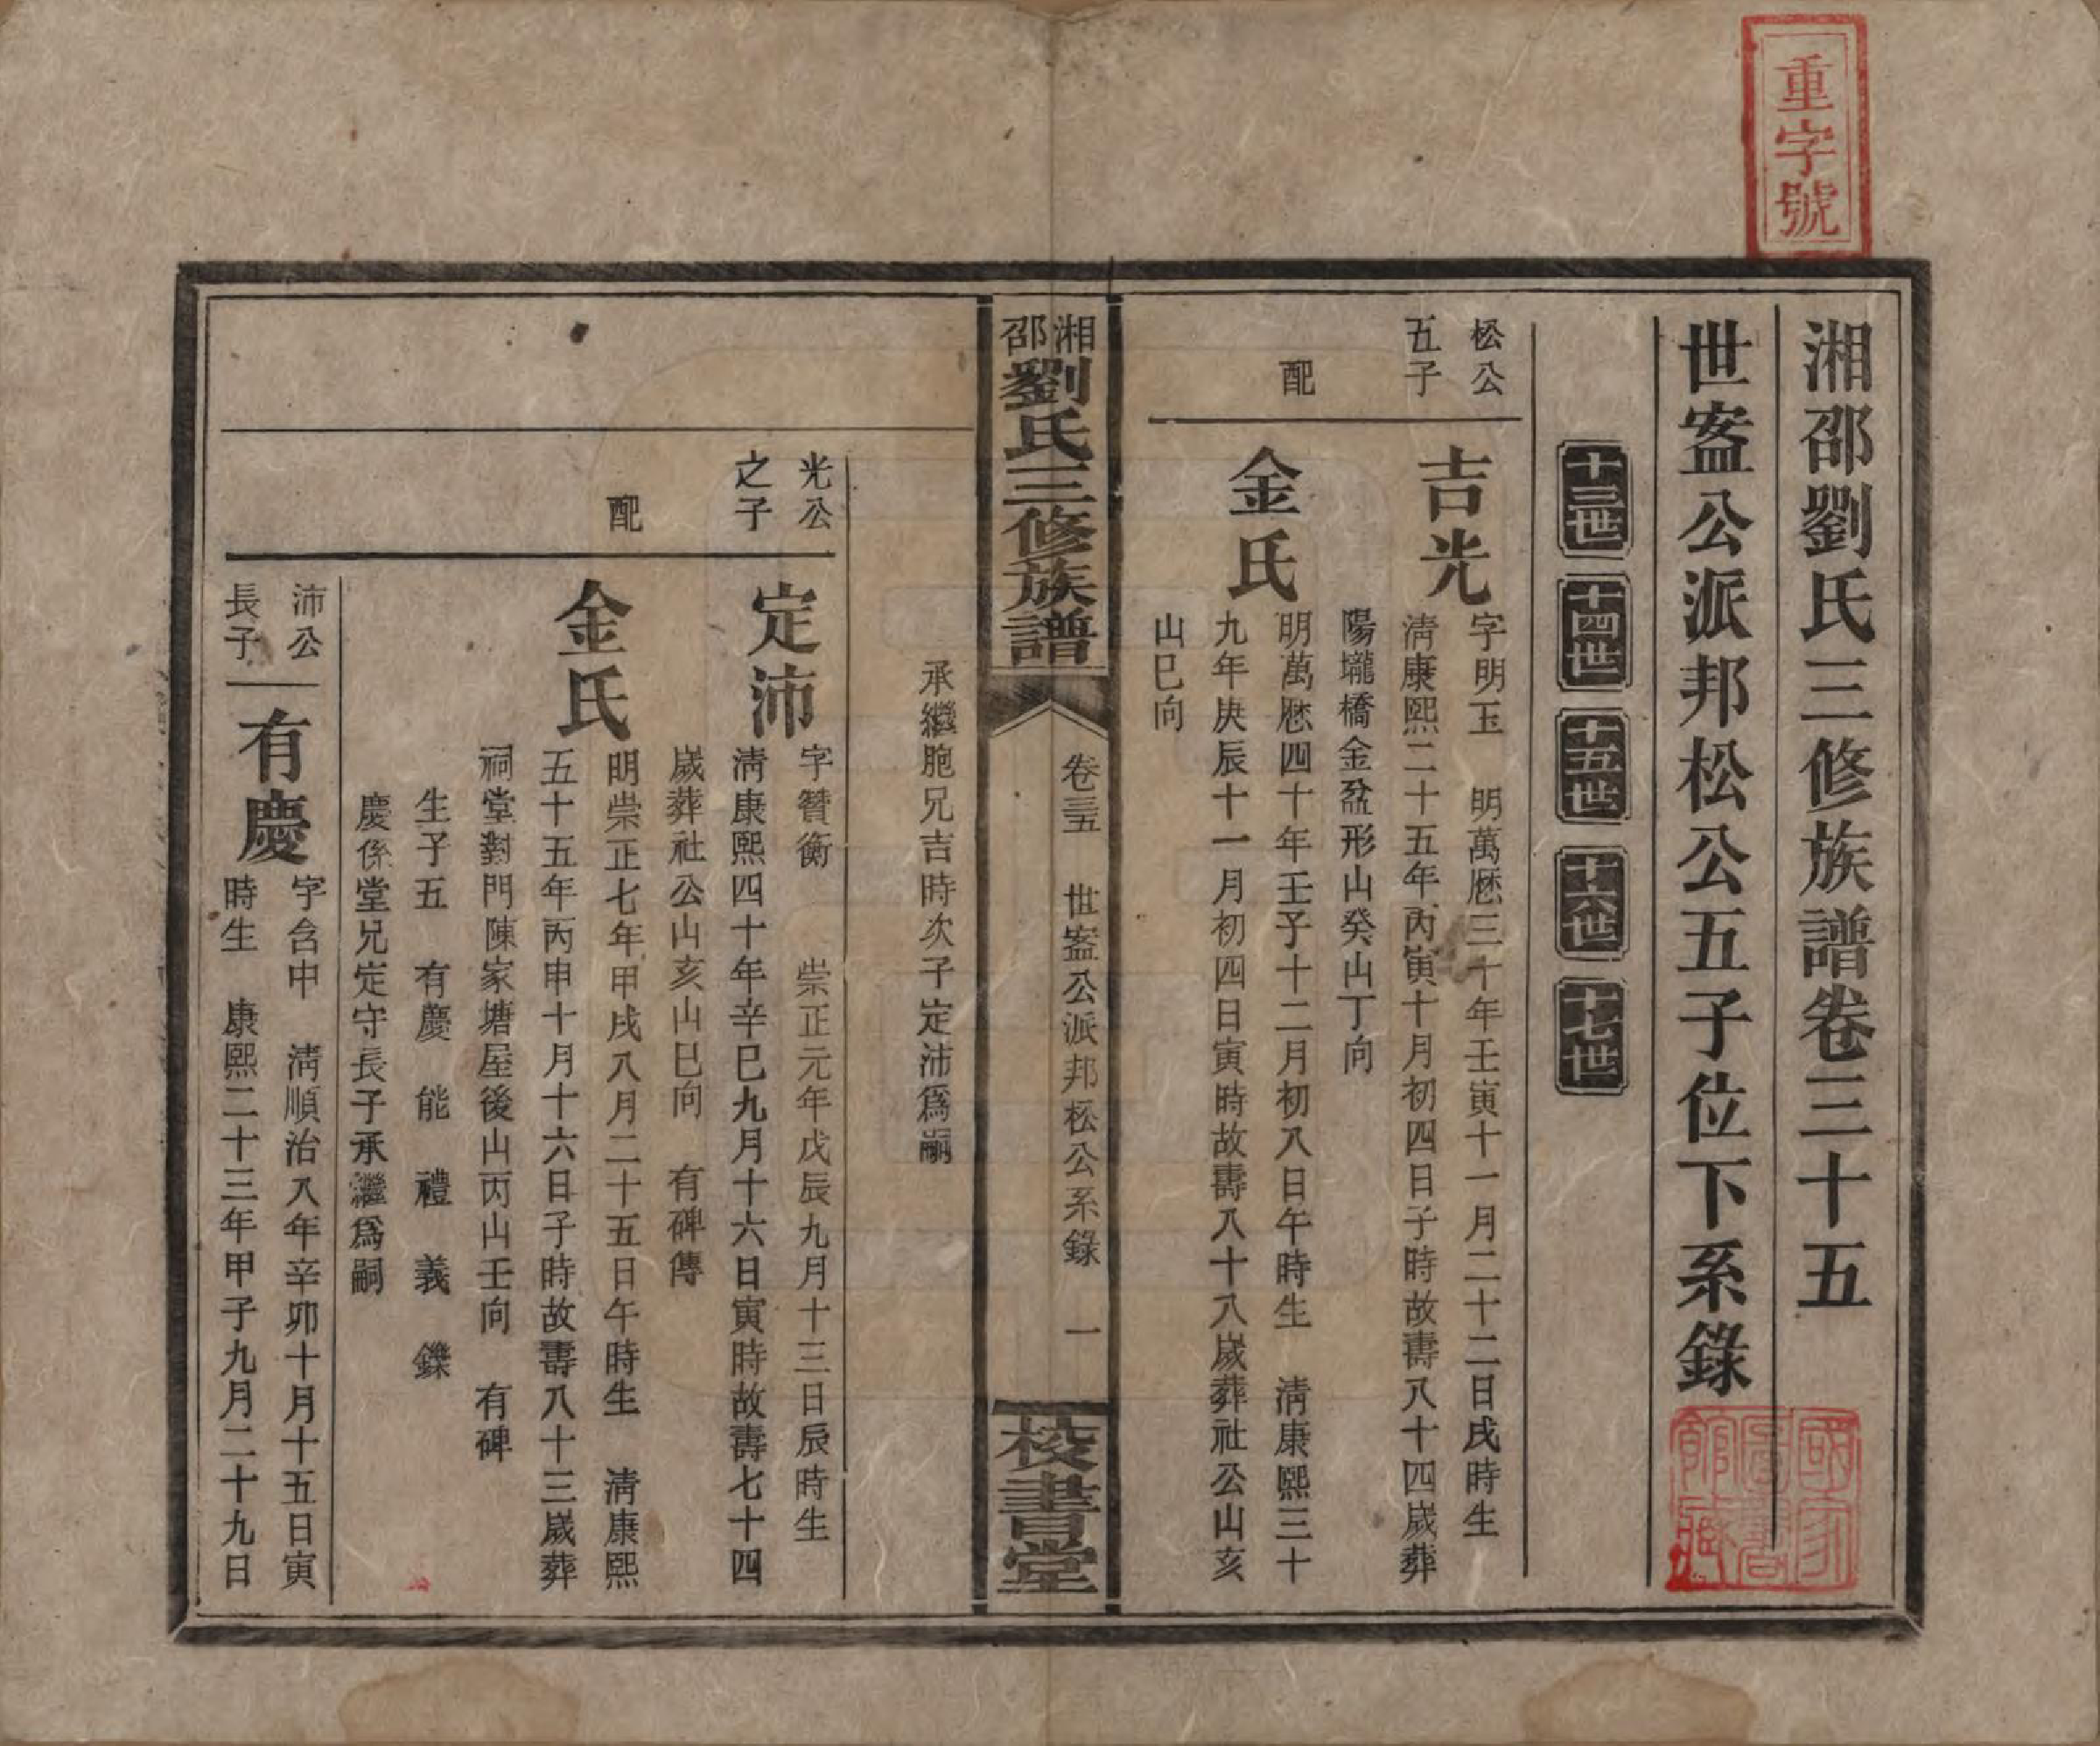 重字號
湘邵劉氏三修族譜卷三十五
國家圖書館藏
世盗公派邦松公五子位下系錄
十三世 十四世 十五世 十六世 十七世
松公五子
吉光
字明玉 明萬厯三十年壬寅十一月二十二日戌時生
淸康熙二十五年丙寅十月初四日子時故壽八十四歲葬
陽壠橋金盆形山癸山丁向
配
金氏
明萬厯四十年壬子十二月初八日午時生 淸康熙三十
九年庚辰十一月初四日寅時故壽八十八歲葬社公山亥
山巳向
湘邵劉氏三修族譜
卷三五 世盗公派邦松公系錄 一
校書堂
承繼胞兄吉時次子定沛爲嗣
光公之子
定沛
字贊衡 崇正元年戊辰九月十三日辰時生
淸康熙四十年辛巳九月十六日寅時故壽七十四
歲葬社公山亥山巳向 有碑傳
配
金氏
明崇正七年甲戌八月二十五日午時生 淸康熙
五十五年丙申十月十六日子時故壽八十三歲葬
祠堂對門陳家塘屋後山丙山壬向 有碑
生子五 有慶 能 禮 義 鑠
慶係堂兄定守長子承繼爲嗣
沛公長子
有慶
字含中 淸順治八年辛卯十月十五日寅
時生 康熙二十三年甲子九月二十九日